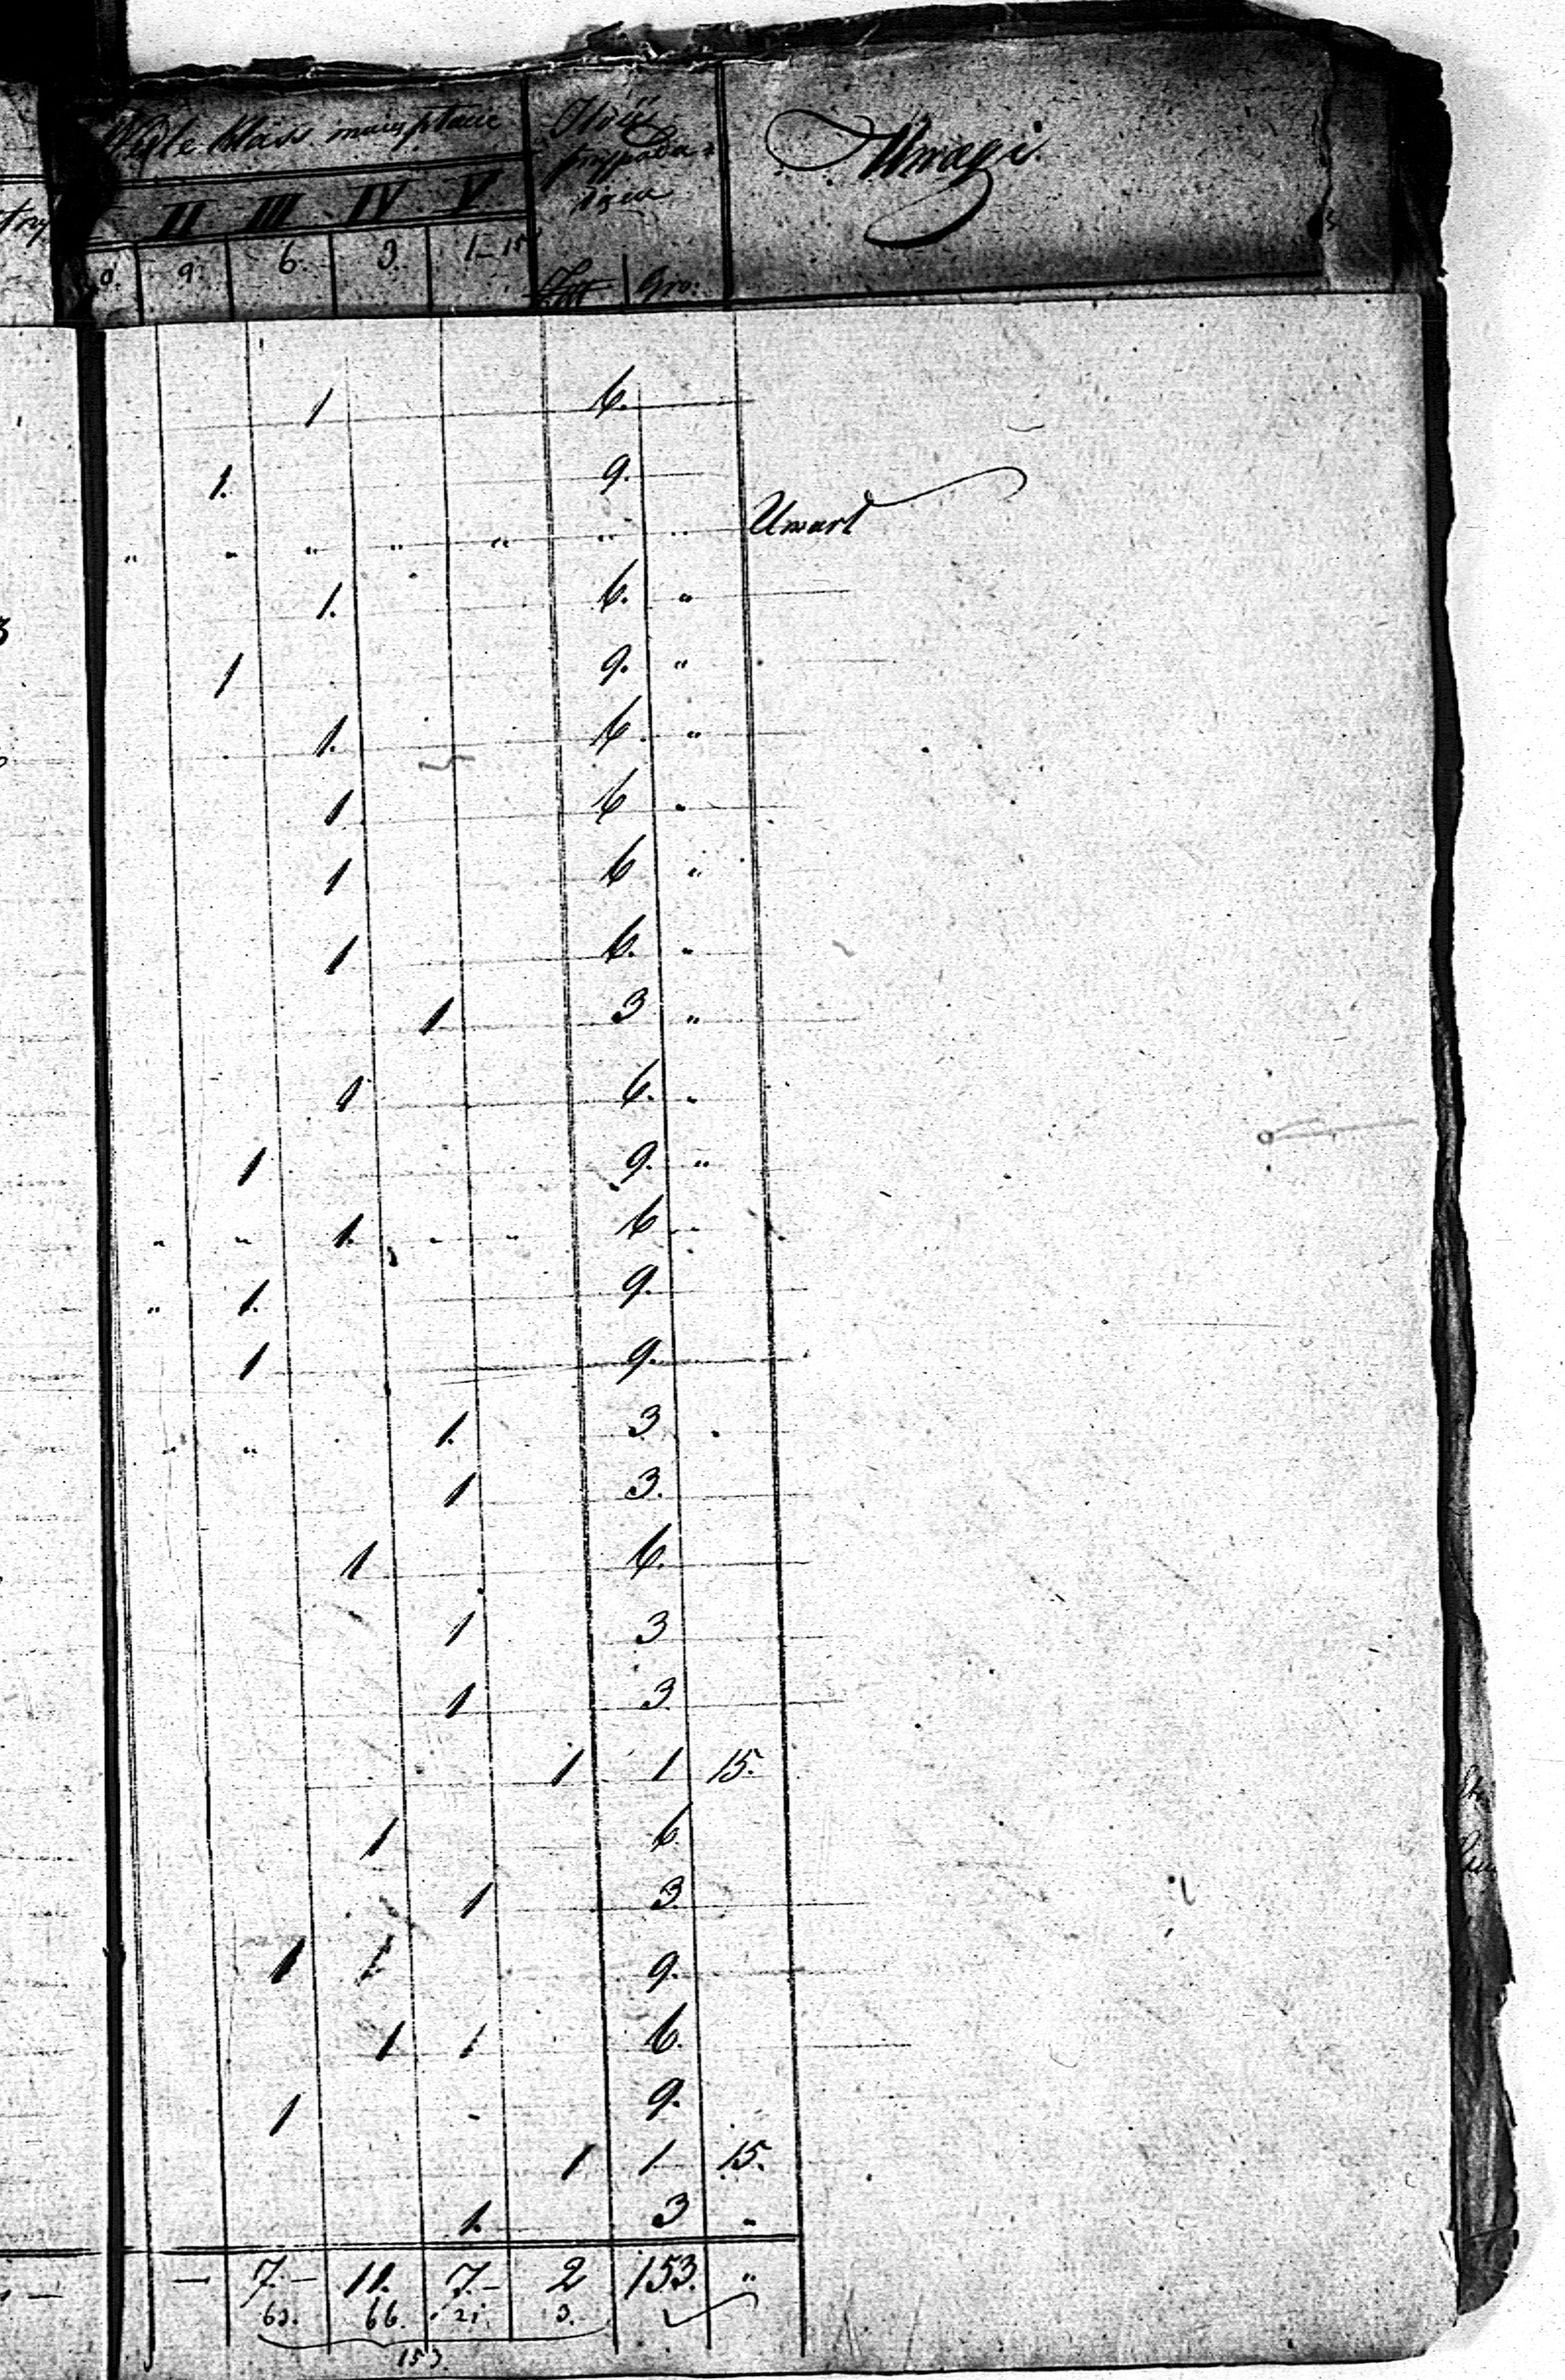 Wedle Klass. maią płacić
Ilość przypada
Uwagi
II III IV V
9. 6. 3. 1-15
Złtt Gro:
1 6.
1. 9.
„ „ „ „ „ „ „ Umarł
1. 6. „
1 9. „
1. 6. „
1 6 „
1 6 „
1 6. „
1 3 „
1 6. „
1 9. „
„ „ 1. „ „ 6 „
„ 1. 9.
1 9.
„ „ 1. 3 .
1 3.
1 6.
1 3
1 3
1 1 15.
1 6.
1 3.
1 1 9.
1 1 6.
1 9.
1 1 15.
1. 3 „
— 7.— 11. 7.— 2 153. „
63. 66. 21. 3.
153.